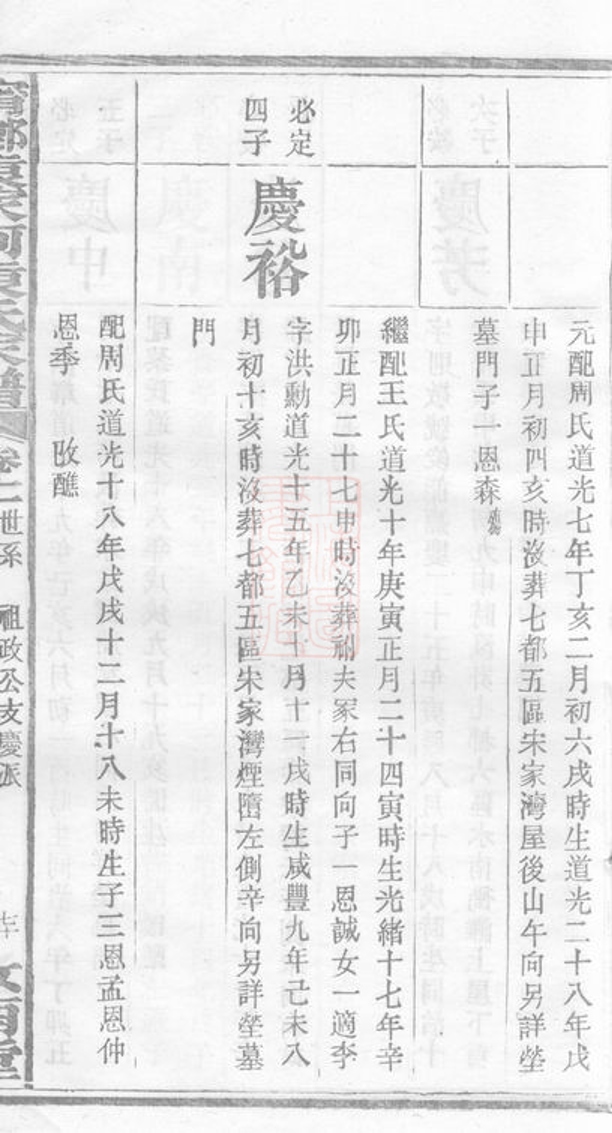 元配周氏道光七年丁亥二月初六戌時生道光二十八年戊
申正月初四亥時沒葬七都五區宋家灣屋後山午向另詳塋
墓門子一恩森
繼配王氏道光十年庚寅正月二十四寅時生光緒十七年辛
卯正月二十七申時沒葬祔夫冢右同向子一恩誠女一適李
必定
四子
慶裕
字洪勳道光十五年乙未十月十一戌時生咸豐九年己未八
月初十亥時沒葬七都五區宋家灣煙墩左側辛向另詳塋墓
門
配周氏道光十八年戊戌十二月十八未時生子三恩孟恩仲
恩季 改醮
卷二世系 祖政公支慶派